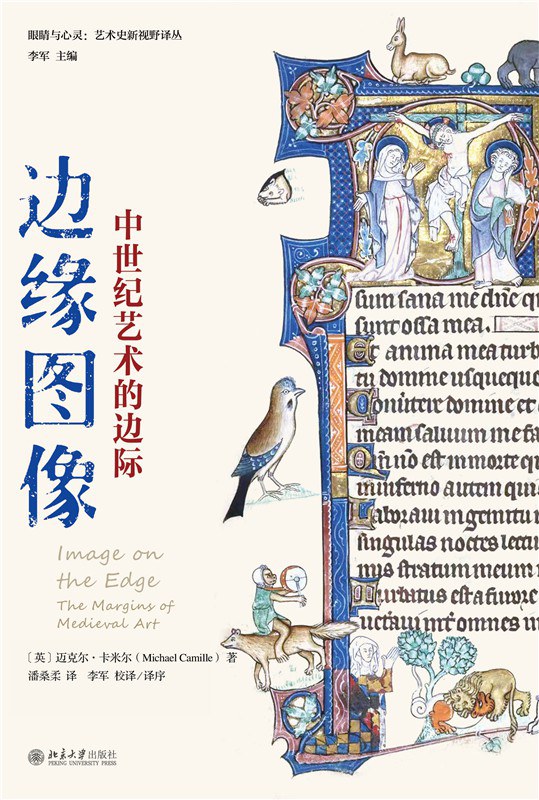 眼睛与心灵：艺术史新视野译丛
李军 主编
边缘图像
中世纪艺术的边际
Image on
the Edge
The Margins of
Medieval Art
［英］迈克尔·卡米尔（Michael Camille）著
潘桑柔 译 李军 校译/译序
北京大学出版社
PEKING UNIVERSITY PRESS
sum sana me dñe
sunt ossa mea.
Et anima mea turb
tu domine usqueque
Conuertere domine et
meam saluum me fa
est in morte
in inferno autem qui
Laboraui in gemitu
singulas noctes lectu
stratum meum
Turbatus est a furore
omnes in